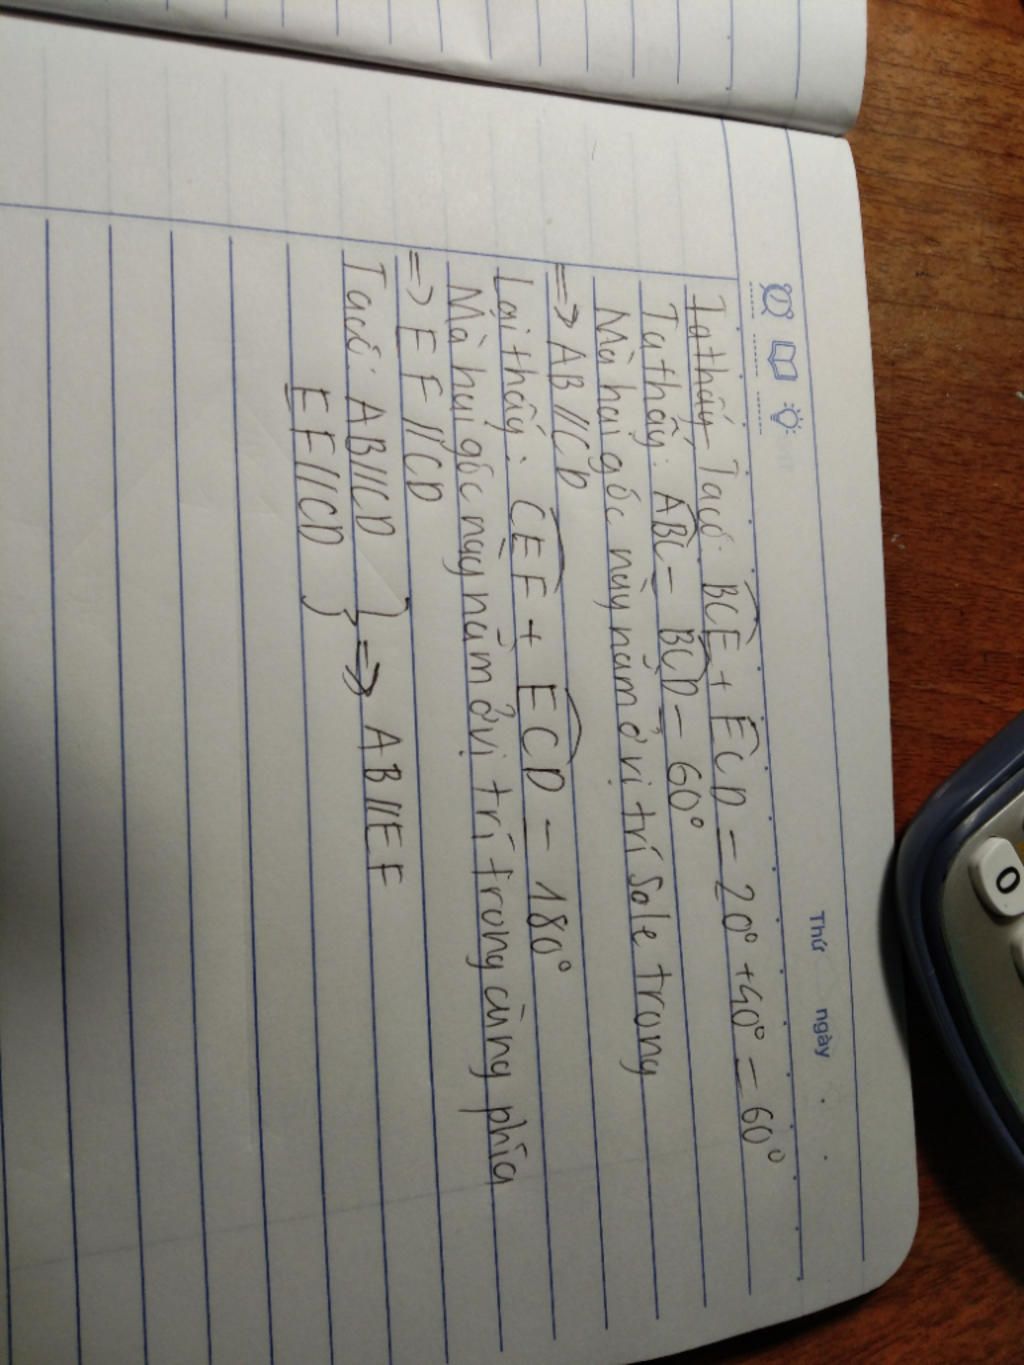 Thứ ngày . .
Ta thấy Ta có: BCE + ECD = 20° + 40° = 60°
Ta thấy: ABC = BCD = 60°
Mà hai góc này nằm ở vị trí sole trong
=> AB // CD
Lại thấy: CEF + ECD = 180°
Mà hai góc này nằm ở vị trí trong cùng phía
=> EF // CD
Ta có: AB // CD } => AB // EF
EF // CD }
0